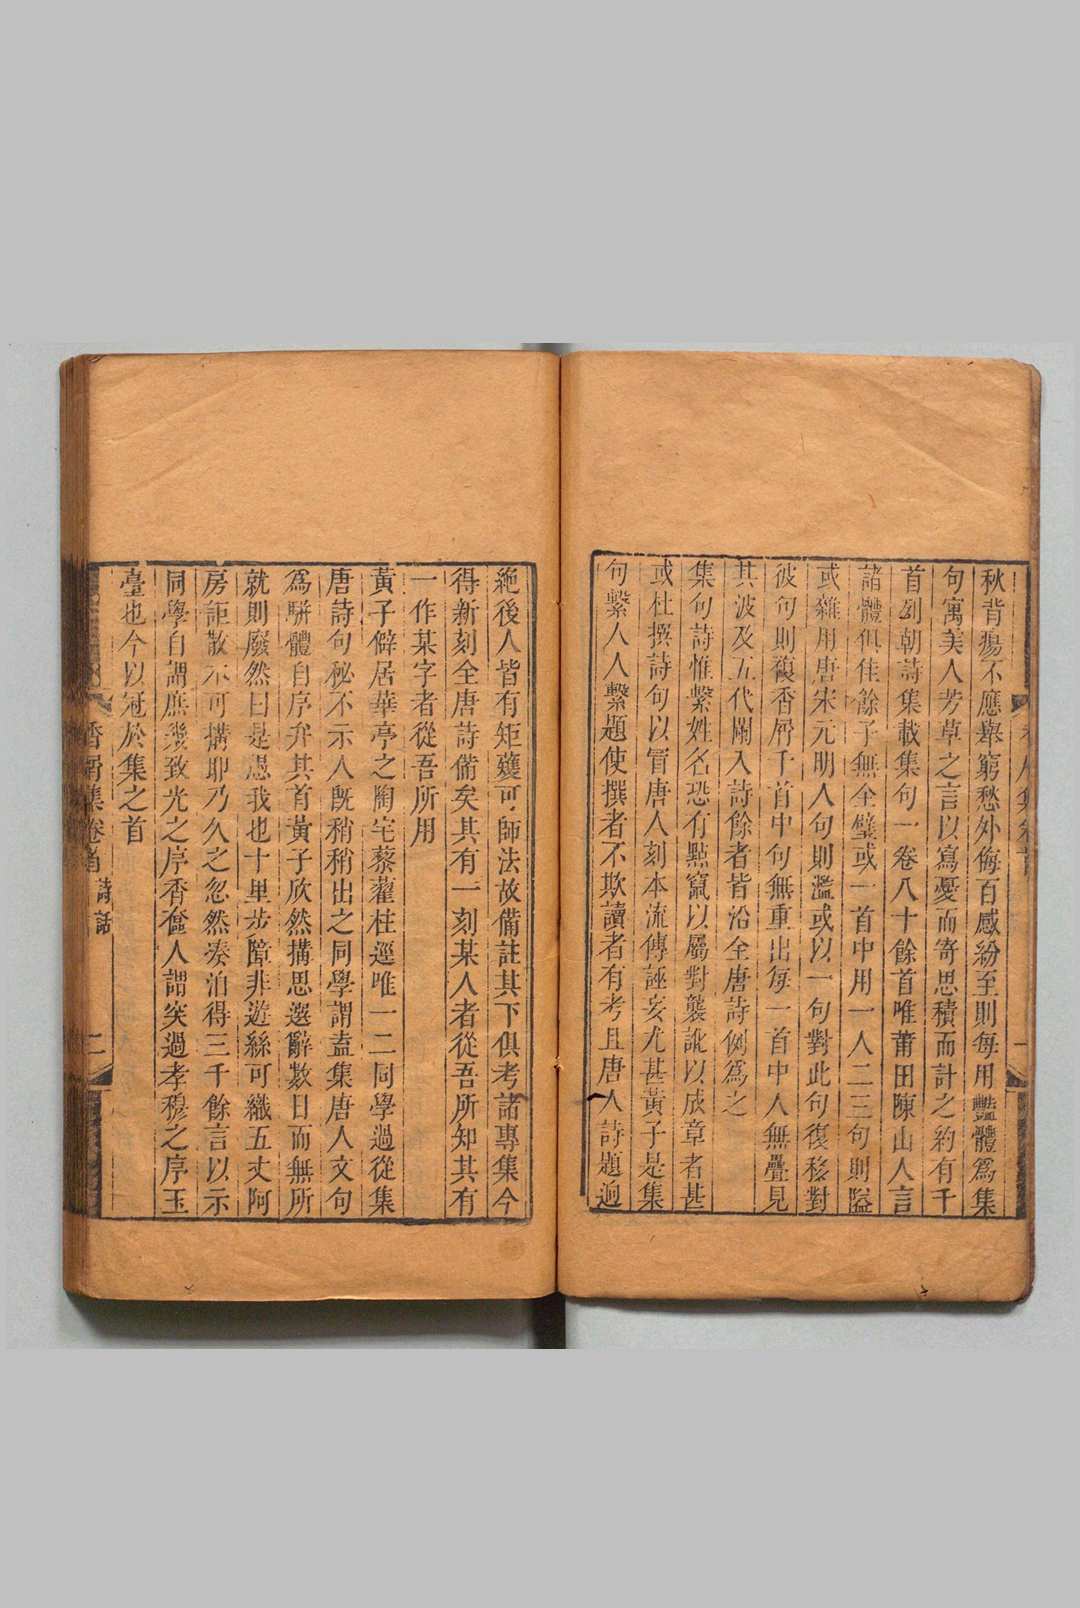 秋背瘍不應舉窮愁外侮百感紛至則每用豔體爲集
句寓美人芳草之言以寫憂而寄思積而計之約有千
首列朝詩集載集句一卷八十餘首唯莆田陳山人言
諸體俱佳餘子無全璧或一首中用一人二三句則隘
或雜用唐宋元明人句則濫或以一句對此句復移對
彼句則複香屑千首中句無重出每一首中人無疊見
其波及五代闌入詩餘者皆沿全唐詩例爲之
集句詩惟繫姓名恐有點竄以屬對襲訛以成章者甚
或杜撰詩句以冒唐人刻本流傳誣妄尤甚黃子是集
句繫人人繫題使撰者不欺讀者有考且唐人詩題逈
絶後人皆有矩矱可師法故備註其下俱考諸專集今
得新刻全唐詩備矣其有一刻某人者從吾所知其有
一作某字者從吾所用
黃子僻居華亭之陶宅藜藿柱逕唯一二同學過從集
唐詩句秘不示人旣稍稍出之同學謂盍集唐人文句
爲駢體自序弁其首黃子欣然搆思選辭數日而無所
就則廢然曰是愚我也十里步障非遊絲可織五丈阿
房詎散木可搆耶乃久之忽然湊泊得三千餘言以示
同學自謂庶幾致光之序香奩人謂突過孝穆之序玉
臺也今以冠於集之首
香屑集卷首 詩話 二